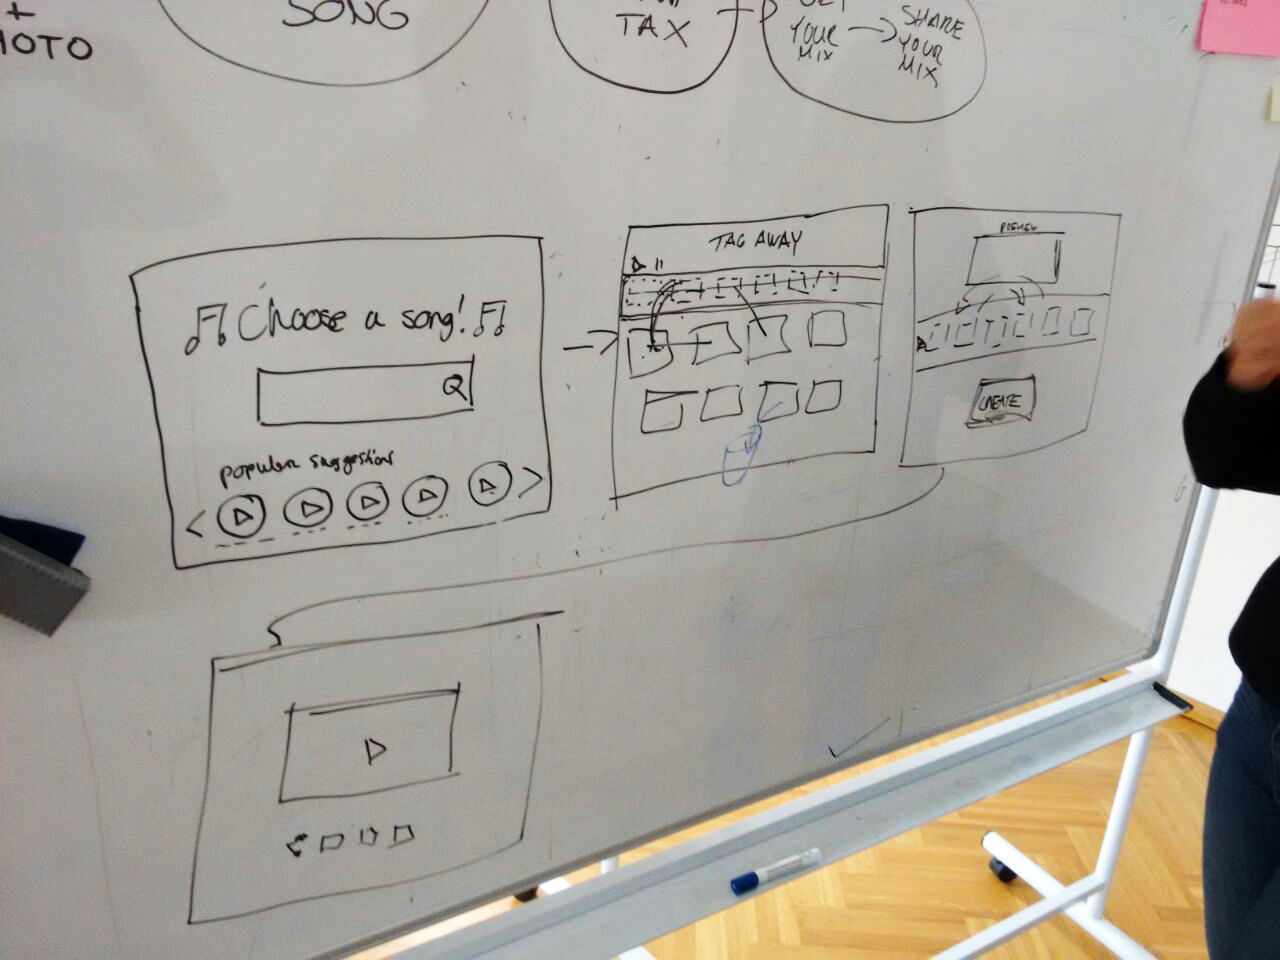 +
HOTO
SONG
TAX
GET
YOUR
MIX
SHARE
YOUR
MIX
Choose a song!
popular suggestions
TAG AWAY
PREVIEW
CREATE